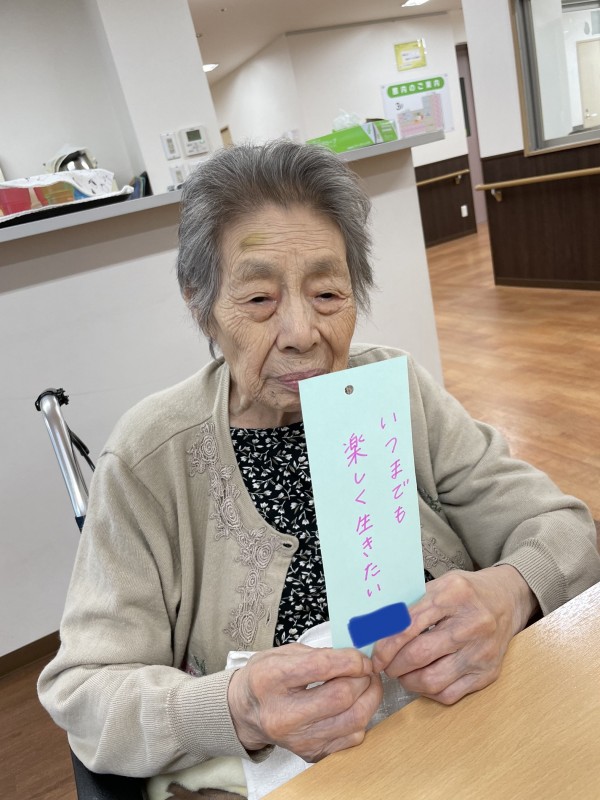 いつまでも
楽しく生きたい
館内のご案内